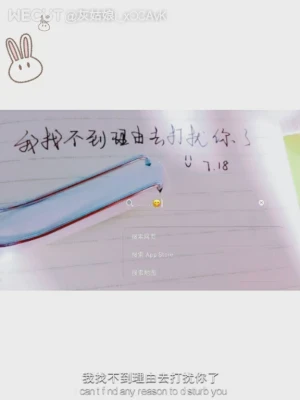 WECUT @灰姑娘_x03AvK
我找不到理由去打扰你了
7.18
我找不到理由去打扰你了
can't find any reason to disturb you